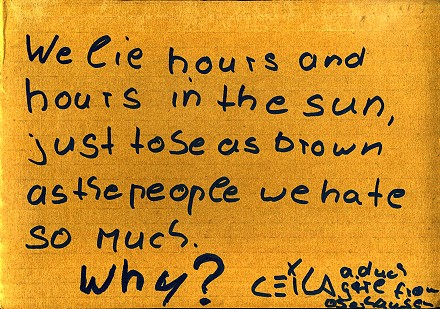 We lie hours and
hours in the sun,
just to be as brown
as the people we hate
so much.
Why?
a duch
girl from